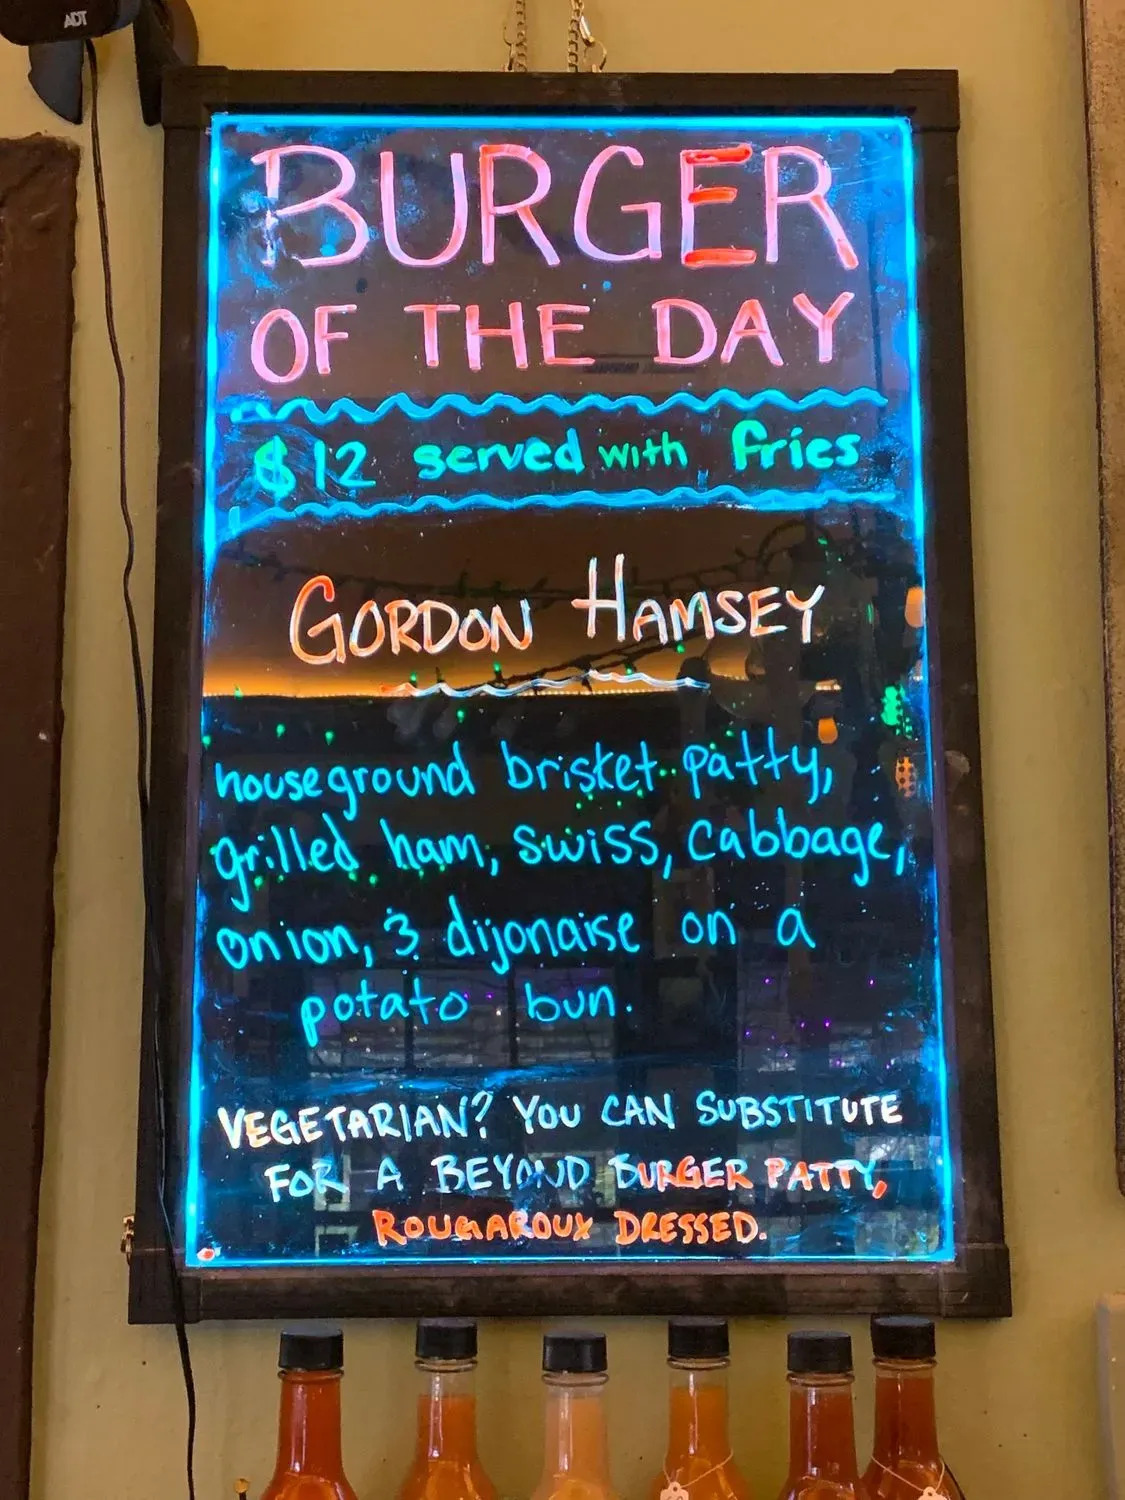 ADT
BURGER
OF THE DAY
$12 served with fries
GORDON HAMSEY
houseground brisket patty,
grilled ham, swiss, cabbage,
onion, & dijonaise on a
potato bun.
VEGETARIAN? YOU CAN SUBSTITUTE
FOR A BEYOND BURGER PATTY,
ROUGAROUX DRESSED.